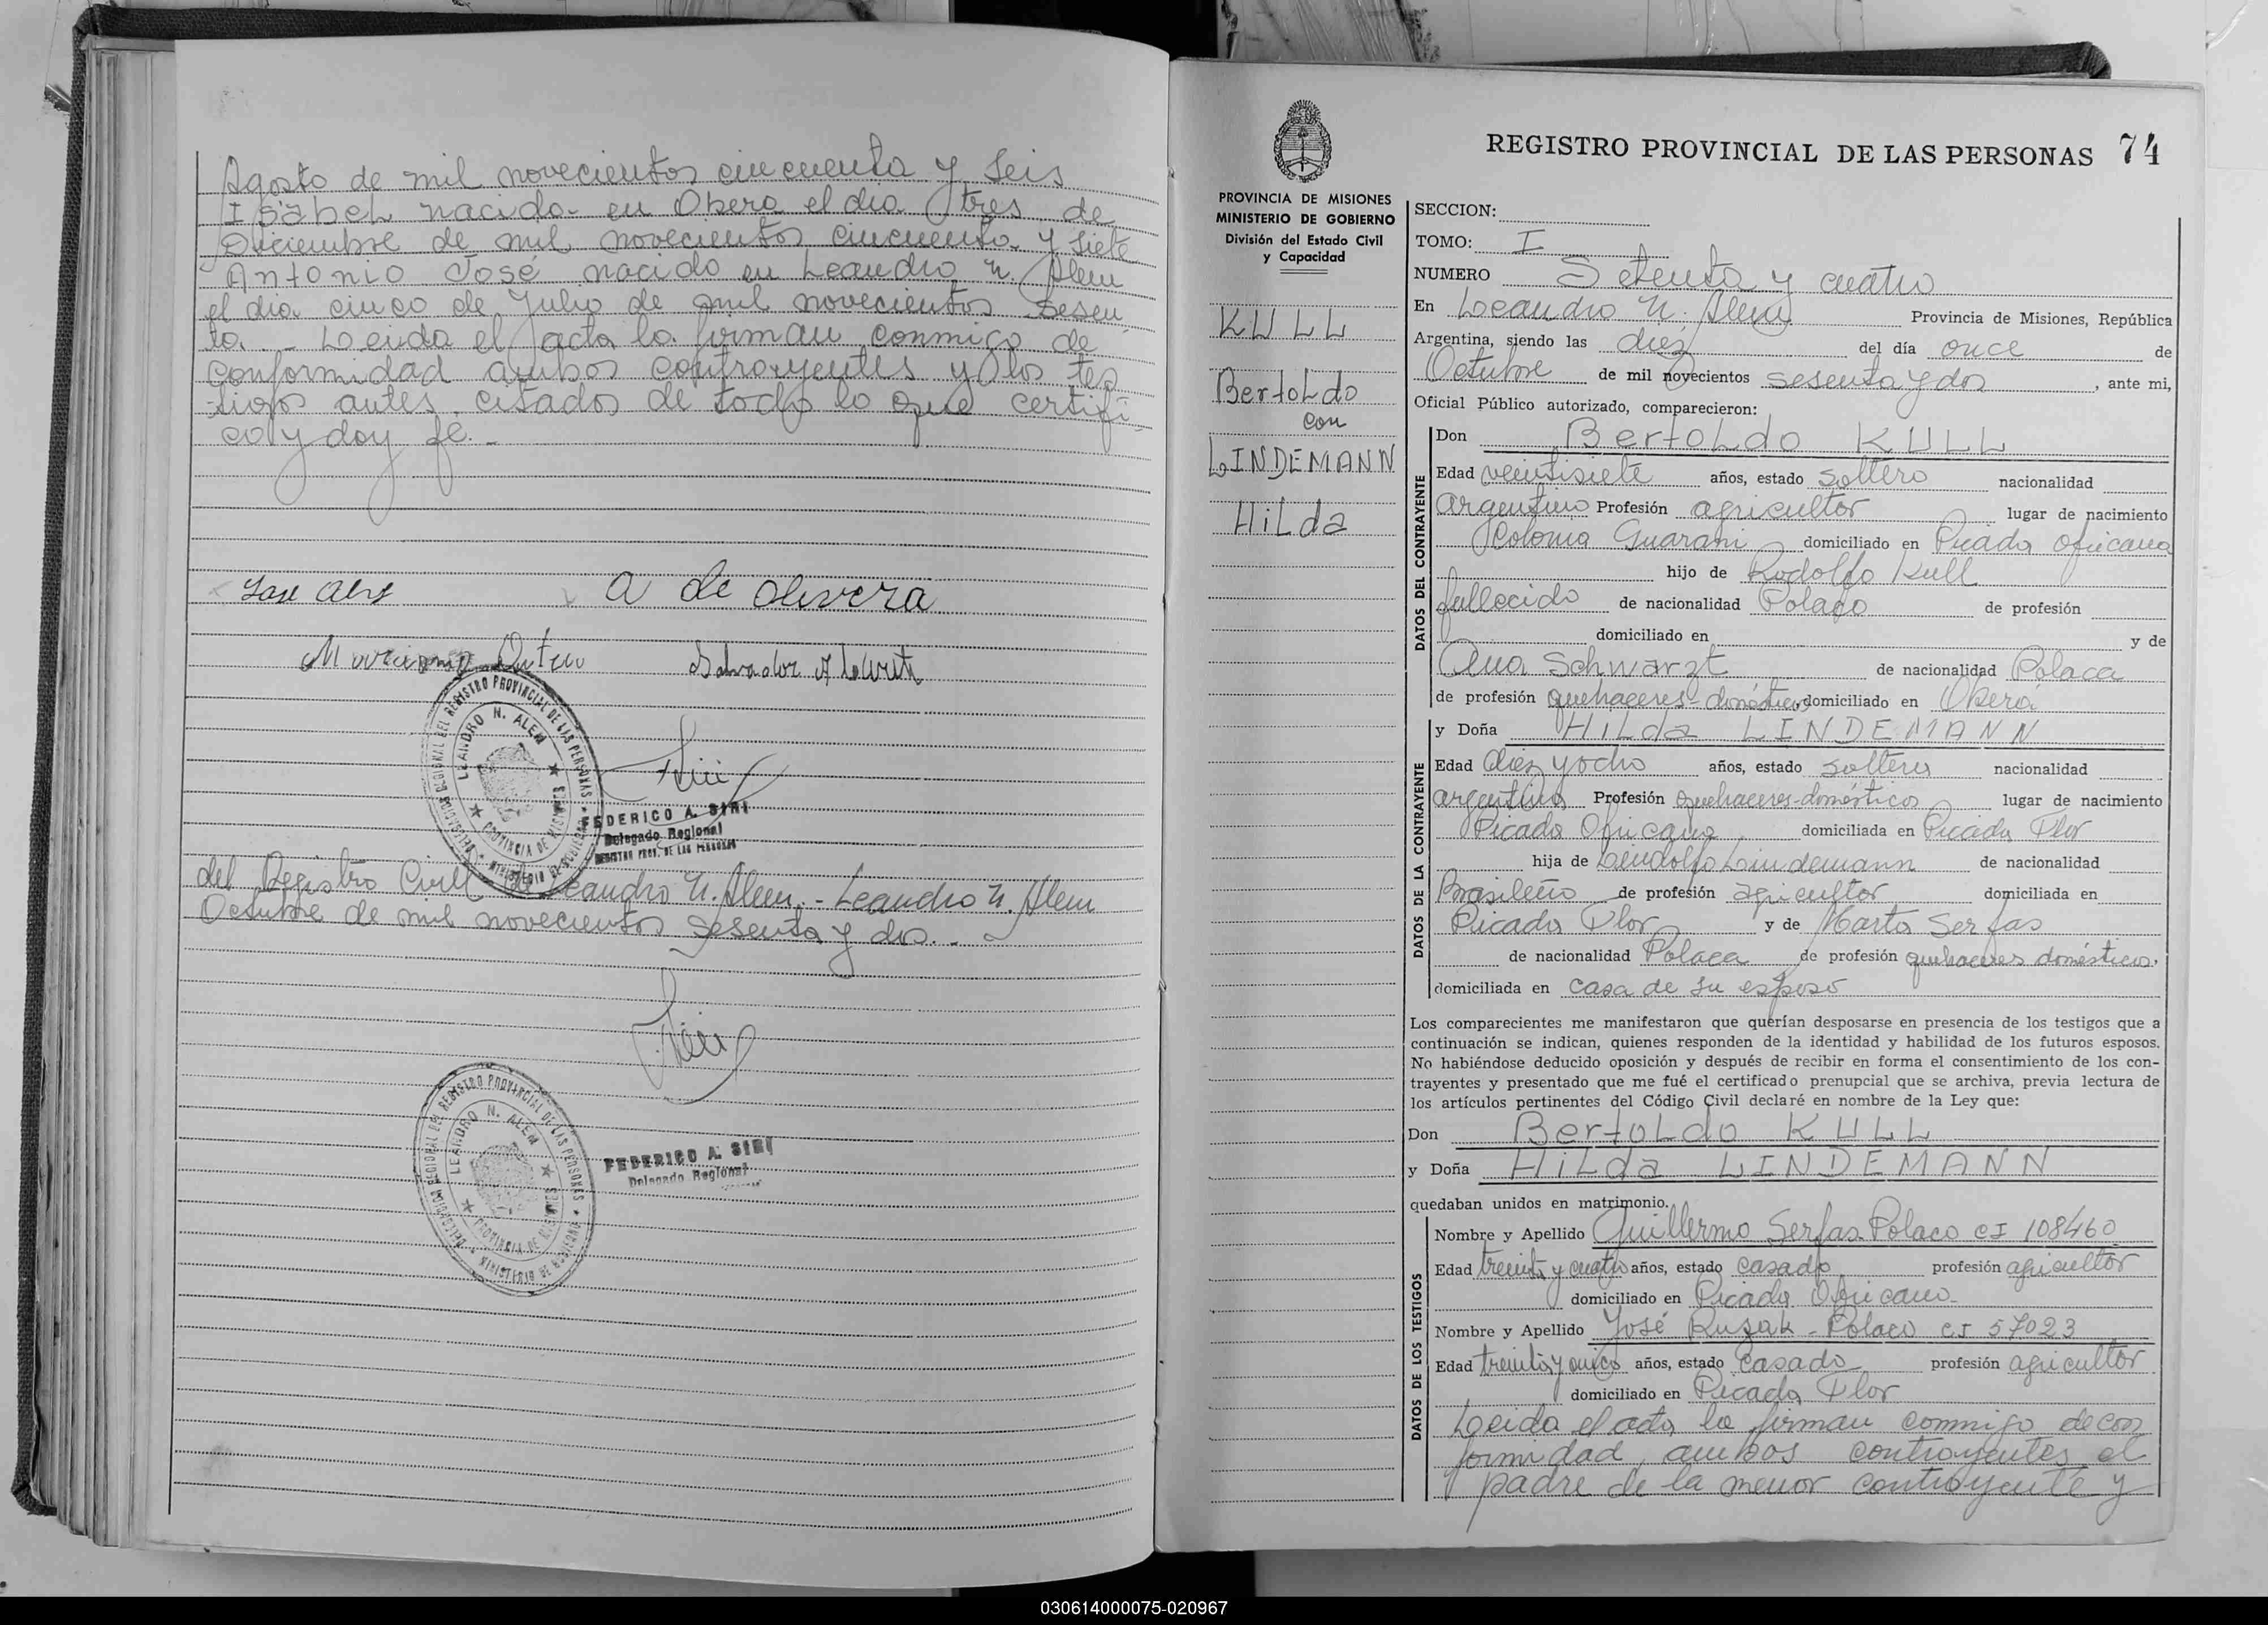 Agosto de mil novecientos cincuenta y seis
Isabel nacida en Oberá el día tres de
Diciembre de mil novecientos cincuenta y siete
Antonio José nacido en Leandro N. Alem
el día cinco de Julio de mil novecientos sesen
ta. - Leída el acta la firman conmigo de
conformidad ambos contrayentes y los tes
tigos antes citados de todo lo que certifi
co y doy fe. -
a de olivera
FEDERICO A. SIRI
Delegado Regional
REGISTRO PROV. DE LAS PERSONAS
DELEGACION REGIONAL DEL REGISTRO PROVINCIAL DE LAS PERSONAS
LEANDRO N. ALEM
PROVINCIA DE MISIONES
MINISTERIO DE GOBIERNO
del Registro Civil de Leandro N. Alem. - Leandro N. Alem
Octubre de mil novecientos sesenta y dos. -
DELEGACION REGIONAL DEL REGISTRO PROVINCIAL DE LAS PERSONAS
LEANDRO N. ALEM
PROVINCIA DE MISIONES
MINISTERIO DE GOBIERNO
FEDERICO A. SIRI
Delegado Regional
PROVINCIA DE MISIONES
MINISTERIO DE GOBIERNO
División del Estado Civil
y Capacidad
KULL
Bertoldo
con
LINDEMANN
Hilda
REGISTRO PROVINCIAL DE LAS PERSONAS 74
SECCION:
TOMO: I
NUMERO Setenta y cuatro
En Leandro N. Alem Provincia de Misiones, República
Argentina, siendo las diez del día once de
Octubre de mil novecientos sesenta y dos, ante mi,
Oficial Público autorizado, comparecieron:
DATOS DEL CONTRAYENTE
Don Bertoldo KULL
Edad veintisiete años, estado soltero nacionalidad
argentino Profesión agricultor lugar de nacimiento
Colonia Guaraní domiciliado en Picada Africana
hijo de Rodolfo Kull
fallecido de nacionalidad Polaco de profesión
domiciliado en y de
Ana Schwarzt de nacionalidad Polaca
de profesión quehaceres-domésticos domiciliado en Oberá
DATOS DE LA CONTRAYENTE
y Doña Hilda LINDEMANN
Edad diez y ocho años, estado soltera nacionalidad
argentina Profesión quehaceres-domésticos lugar de nacimiento
Picada Africana domiciliada en Picada Flor
hija de Lindemann de nacionalidad
Brasileño de profesión agricultor domiciliada en
Picada Flor y de Marta Serfas
de nacionalidad Polaca de profesión quehaceres domésticos,
domiciliada en casa de su esposo
Los comparecientes me manifestaron que querían desposarse en presencia de los testigos que a
continuación se indican, quienes responden de la identidad y habilidad de los futuros esposos.
No habiéndose deducido oposición y después de recibir en forma el consentimiento de los con-
trayentes y presentado que me fué el certificado prenupcial que se archiva, previa lectura de
los artículos pertinentes del Código Civil declaré en nombre de la Ley que:
Don Bertoldo KULL
y Doña Hilda LINDEMANN
quedaban unidos en matrimonio.
DATOS DE LOS TESTIGOS
Nombre y Apellido Guillermo Serfas-Polaco CI 108460
Edad treinta y cuatro años, estado casado profesión agricultor
domiciliado en Picada Africana
Nombre y Apellido José Ruzak - Polaco CI 57023
Edad treinta y cinco años, estado casado profesión agricultor
domiciliado en Picada Flor
Leída el acta la firman conmigo de con
formidad ambos contrayentes el
padre de la menor contrayente y
030614000075-020967